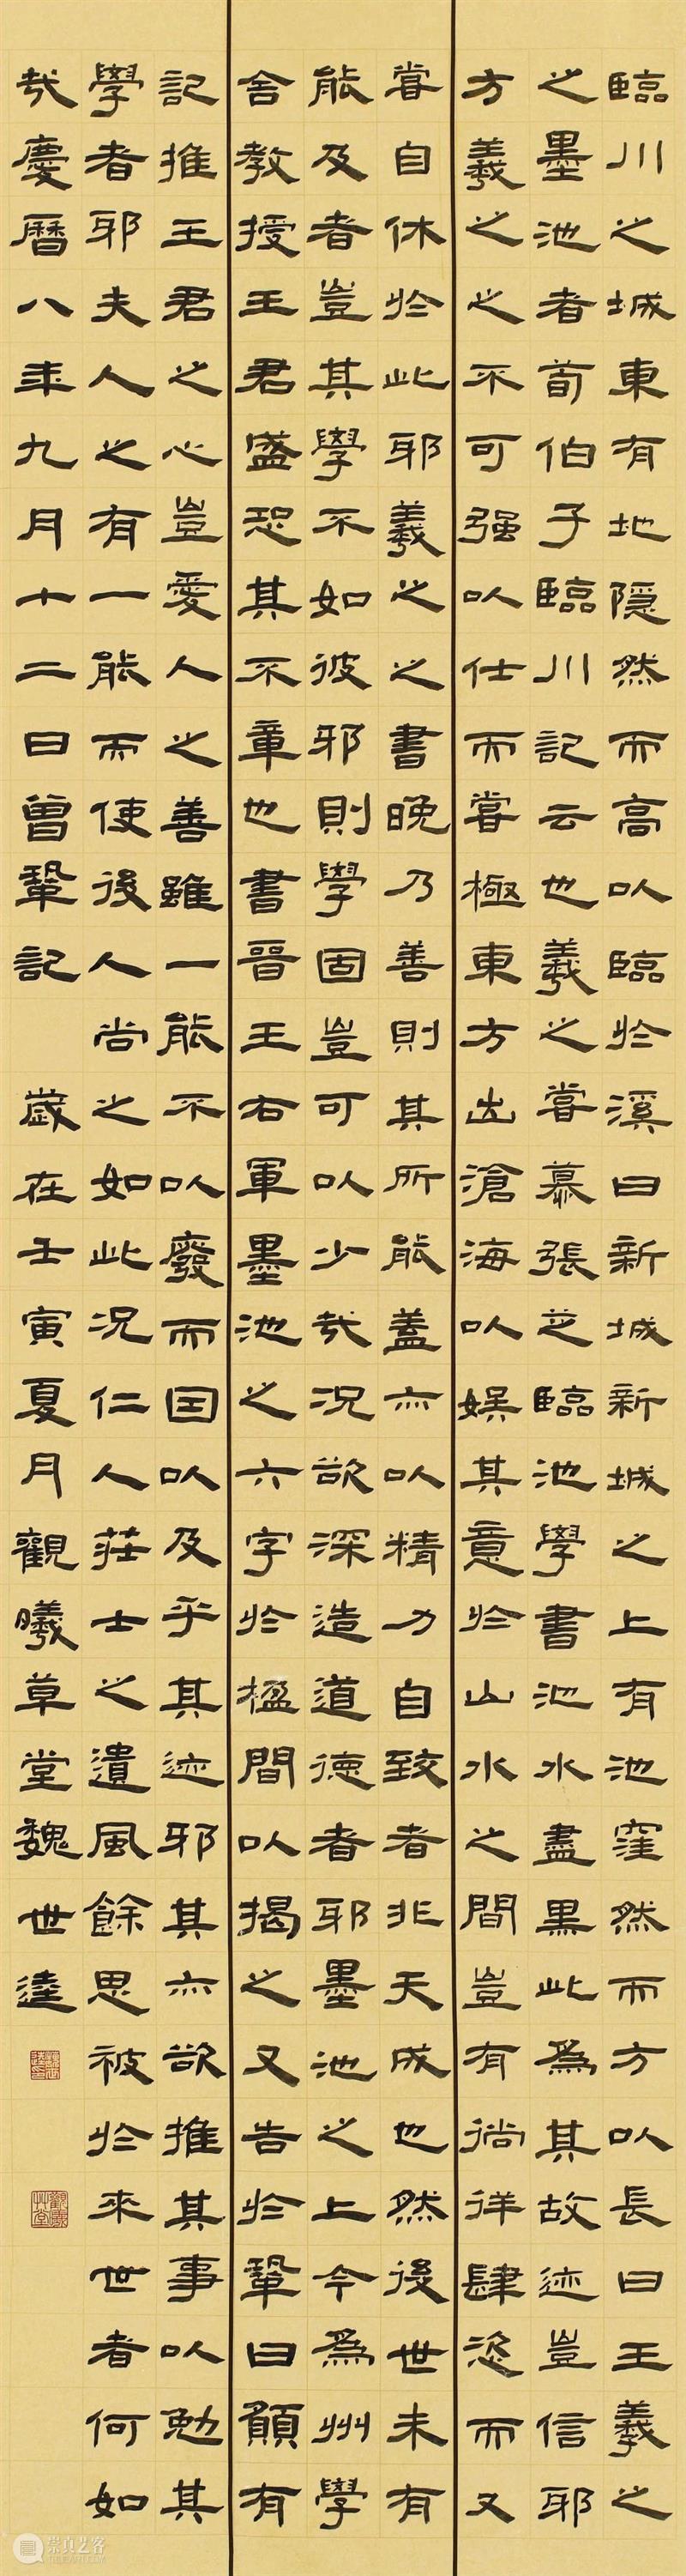 臨川之城東有地隱然而高以臨於溪曰新城新城之上有池窪然而方以長曰王羲之
之墨池者荀伯子臨川記云也羲之嘗慕張芝臨池學書池水盡黑此為其故迹豈信邪
方羲之之不可强以仕而嘗極東方出滄海以娛其意於山水之間豈有徜徉肆恣而又
嘗自休於此邪羲之之書晚乃善則其所能蓋亦以精力自致者非天成也然後世未有
能及者豈其學不如彼邪則學固豈可以少哉况欲深造道德者邪墨池之上今為州學
舍教授王君盛恐其不章也書晉王右軍墨池之六字於楹間以揭之又告於鞏曰願有
記推王君之心豈愛人之善雖一能不以廢而因以及乎其迹邪其亦欲推其事以勉其
學者邪夫人之有一能而使後人尚之如此况仁人莊士之遺風餘思被於來世者何如
哉慶曆八年九月十二日曾鞏記 歲在壬寅夏月觀曦草堂魏世達
觀曦草堂
崇真艺客